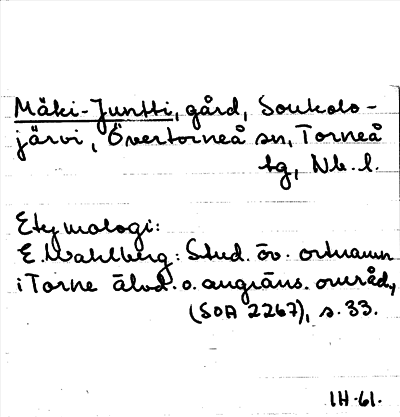 Mäki-Juntti, gård, Soukolo-
järvi, Övertorneå sn, Torneå
tg, Nb. l.
Etymologi:
E. Wahlberg: Stud. öv. ortnamn
i Torne älvd. o. angräns. områd.,
(SOA 2267), s. 33.
IH-61.